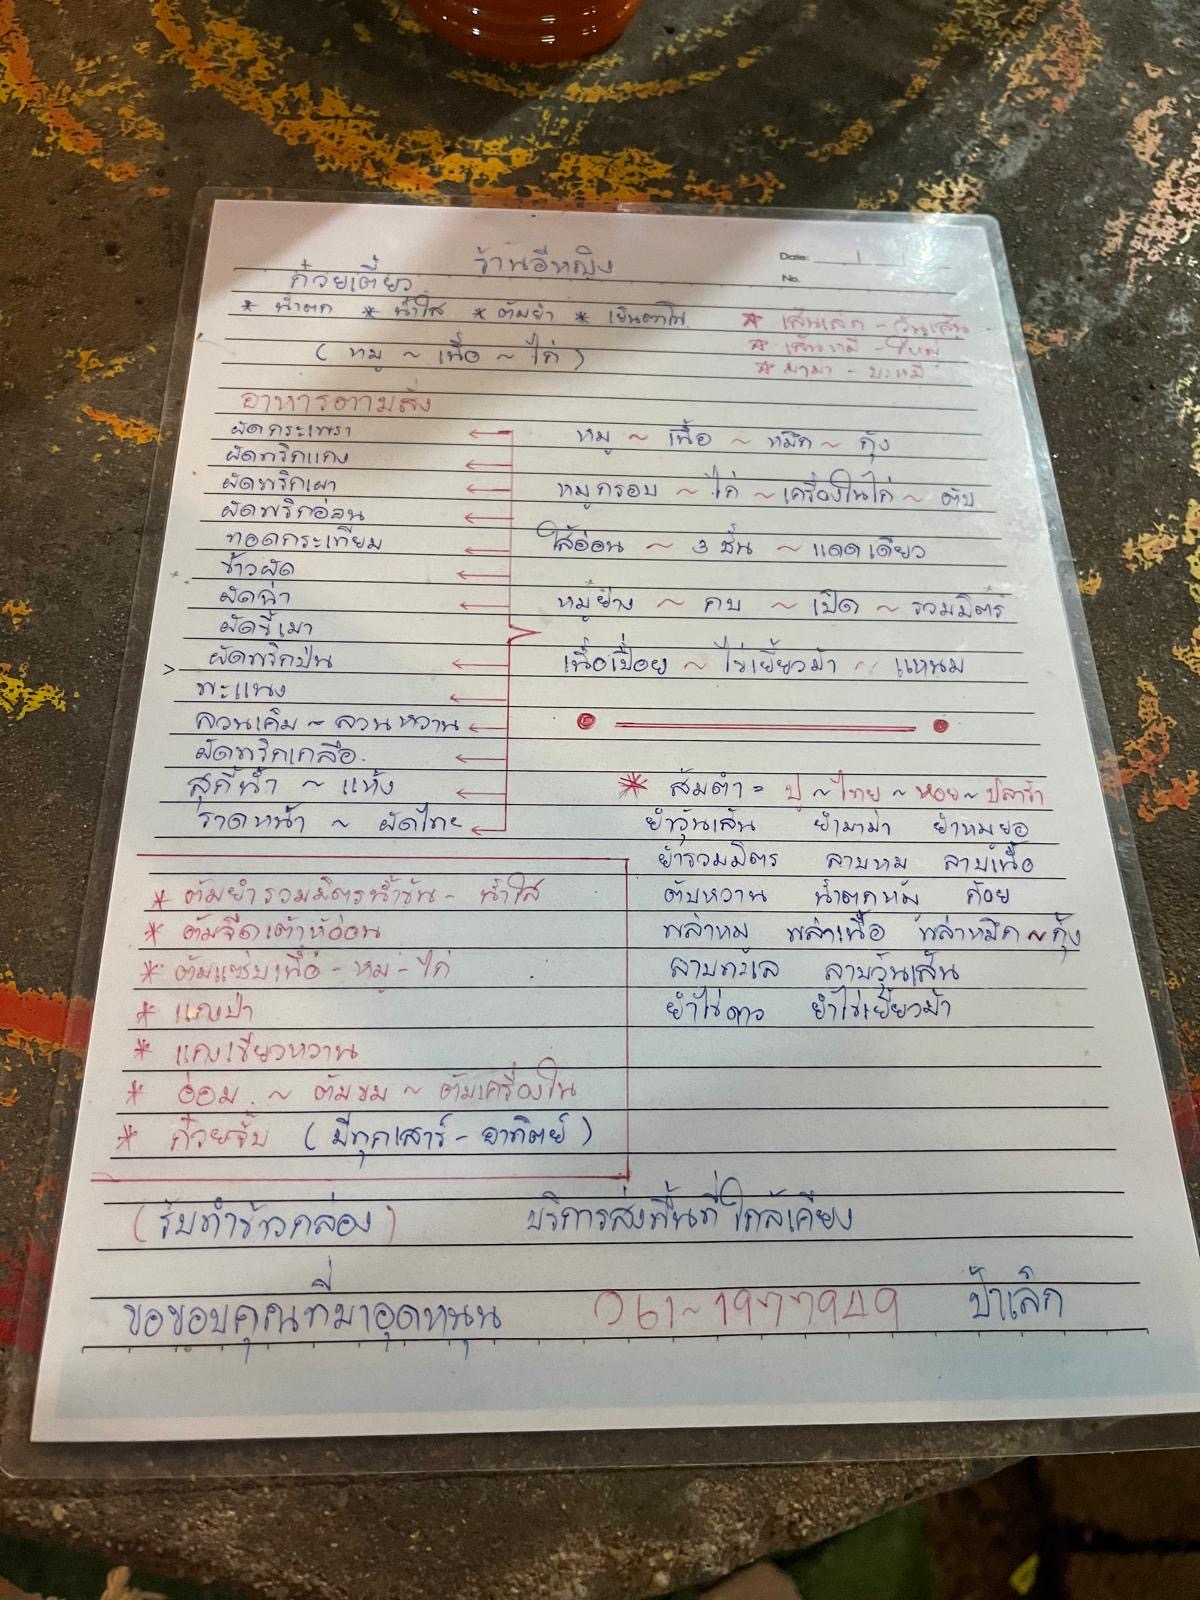 ร้านอีหญิง
Date:
No.
ก๋วยเตี๋ยว
* น้ำตก * น้ำใส * ต้มยำ * เย็นตาโฟ
* เส้นเล็ก - วุ้นเส้น
( หมู ~ เนื้อ ~ ไก่ )
* เส้นหมี่ - ใหญ่
* มาม่า - บะหมี่
อาหารตามสั่ง
ผัดกระเพรา
ผัดพริกแกง
ผัดพริกเผา
ผัดพริกอ่อน
ทอดกระเทียม
ข้าวผัด
ผัดฉ่า
ผัดขี้เมา
ผัดพริกป่น
พะแนง
ลวนเค็ม ~ ลวนหวาน
ผัดพริกเกลือ.
สุกี้น้ำ ~ แห้ง
ราดหน้า ~ ผัดไทย
หมู ~ เนื้อ ~ หมึก ~ กุ้ง
หมูกรอบ ~ ไก่ ~ เครื่องในไก่ ~ ตับ
ไส้อ่อน ~ 3 ชั้น ~ แดดเดียว
หมูย่าง ~ กบ ~ เป็ด ~ รวมมิตร
เนื้อเปื่อย ~ ไข่เยี่ยวม้า ~ แหนม
* ส้มตำ = ปู ~ ไทย ~ หอย ~ ปลาร้า
ยำวุ้นเส้น ยำมาม่า ยำหมูยอ
ยำรวมมิตร ลาบหมู ลาบเนื้อ
ตับหวาน น้ำตกหมู ก้อย
พล่าหมู พล่าเนื้อ พล่าหมึก ~ กุ้ง
ลาบทะเล ลาบวุ้นเส้น
ยำไข่ดาว ยำไข่เยี่ยวม้า
* ต้มยำรวมมิตรน้ำข้น - น้ำใส
* ต้มจืดเต้าหู้อ่อน
* ต้มแซ่บเนื้อ - หมู - ไก่
* แกงป่า
* แกงเขียวหวาน
* อ่อม ~ ต้มขม ~ ต้มเครื่องใน
* ก๋วยจั๊บ ( มีทุกเสาร์ - อาทิตย์ )
( รับทำข้าวกล่อง ) บริการส่งพื้นที่ใกล้เคียง
ขอขอบคุณที่มาอุดหนุน 061~1977949 ป้าเล็ก